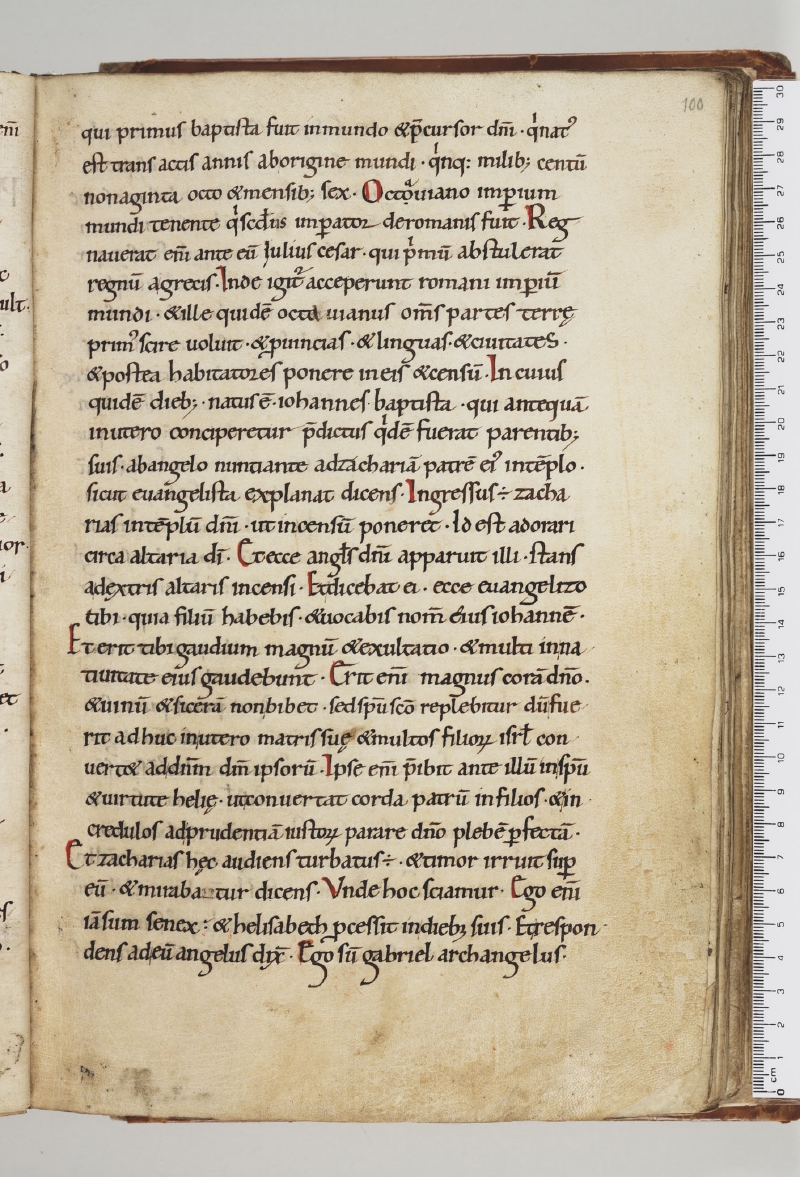 100
qui primus baptista fuit inmundo &p̄cursor dn̄i · q'nat᷒
est trans actis annis aborigine mundi · q'nq: milib; centū
nonaginta octo &mensib; sex · Octouiano imꝑium
mundi tenente q'scd̄us imꝑator deromanis fuit · Reg
nauerat em̄ ante eū Iulius cesar · qui p'mū abstulerat
regnū agrecis · Inde igit᷒ acceperunt romani imꝑiū
mundi · &ille quidē octa uianus om̄s partes terrę
prim᷒ scire uoluit · &ꝓuincias · &linguas · &ciuitates ·
&postea habitatores ponere ineis &censū · In cuius
quidē dieb; · natus ē · iohannes baptista · qui antequā
inutero conciperetur p̄dictus q'dē fuerat parentib;
suis · abangelo nuntiante adzachariā patrē ei᷒ intēplo ·
sicut euangelista explanat dicens · Ingressus ÷ zacha
rias intēplū dn̄i · ut incensū poneret · Id est adorari
circa altaria dī · Et ecce angl̄s dn̄i apparuit illi · stans
adextris altaris incensi · Et dicebat ei · ecce euangelizo
tibi · quia filiū habebis · &uocabis nom̄ eius iohannē ·
Et erit tibi gaudium magnū &exultatio · &multi inna
tiuitate eius gaudebunt · Erit em̄ magnus corā dn̄o ·
&uinū &sicerā non bibet · sed sp̄u sc̄o replebitur dū fue
rit ad huc inutero matris suę &multos filioꝝ isrl̄ con
uert& addn̄m dm̄ ipsorū · Ipse em̄ p̄ibit ante illū insp̄u
&uirtute helię · utconuertat corda patrū infilios · &in
credulos adprudentiā iustoꝝ parare dn̄o plebē ꝑfectā ·
Et zacharias hęc audiens turbatus ÷ · &timor irruit suꝑ
eū · &mirabatur dicens · Vnde hoc sciamur · Ego em̄
iā sum senex : &helisabeth ꝓcessit indieb; suis · Et respon
dens adeū angelus dix̄ · Ego sū gabriel archangelus ·